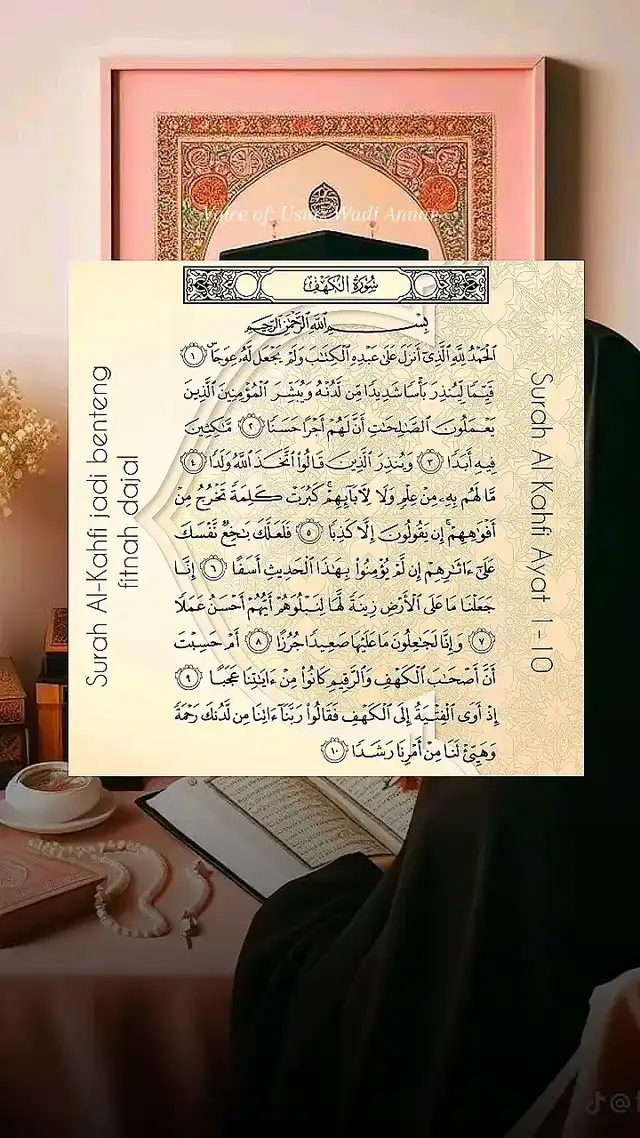 Voice of: Ustz. Wadi Annur
سُورَةُ الكَهْفِ
بِسْمِ اللَّهِ الرَّحْمَٰنِ الرَّحِيمِ
الْحَمْدُ لِلَّهِ الَّذِي أَنزَلَ عَلَىٰ عَبْدِهِ الْكِتَابَ وَلَمْ يَجْعَل لَّهُ عِوَجًا ۜ ١
قَيِّمًا لِّيُنذِرَ بَأْسًا شَدِيدًا مِّن لَّدُنْهُ وَيُبَشِّرَ الْمُؤْمِنِينَ الَّذِينَ
يَعْمَلُونَ الصَّالِحَاتِ أَنَّ لَهُمْ أَجْرًا حَسَنًا ٢ مَّاكِثِينَ
فِيهِ أَبَدًا ٣ وَيُنذِرَ الَّذِينَ قَالُوا اتَّخَذَ اللَّهُ وَلَدًا ٤
مَّا لَهُم بِهِ مِنْ عِلْمٍ وَلَا لِآبَائِهِمْ ۚ كَبُرَتْ كَلِمَةً تَخْرُجُ مِنْ
أَفْوَاهِهِمْ ۚ إِن يَقُولُونَ إِلَّا كَذِبًا ٥ فَلَعَلَّكَ بَاخِعٌ نَّفْسَكَ
عَلَىٰ آثَارِهِمْ إِن لَّمْ يُؤْمِنُوا بِهَٰذَا الْحَدِيثِ أَسَفًا ٦ إِنَّا
جَعَلْنَا مَا عَلَى الْأَرْضِ زِينَةً لَّهَا لِنَبْلُوَهُمْ أَيُّهُمْ أَحْسَنُ عَمَلًا
٧ وَإِنَّا لَجَاعِلُونَ مَا عَلَيْهَا صَعِيدًا جُرُزًا ٨ أَمْ حَسِبْتَ
أَنَّ أَصْحَابَ الْكَهْفِ وَالرَّقِيمِ كَانُوا مِنْ آيَاتِنَا عَجَبًا ٩
إِذْ أَوَى الْفِتْيَةُ إِلَى الْكَهْفِ فَقَالُوا رَبَّنَا آتِنَا مِن لَّدُنكَ رَحْمَةً
وَهَيِّئْ لَنَا مِنْ أَمْرِنَا رَشَدًا ١٠
Surah Al Kahfi Ayat 1-10
Surah Al-Kahfi jadi benteng
fitnah dajal